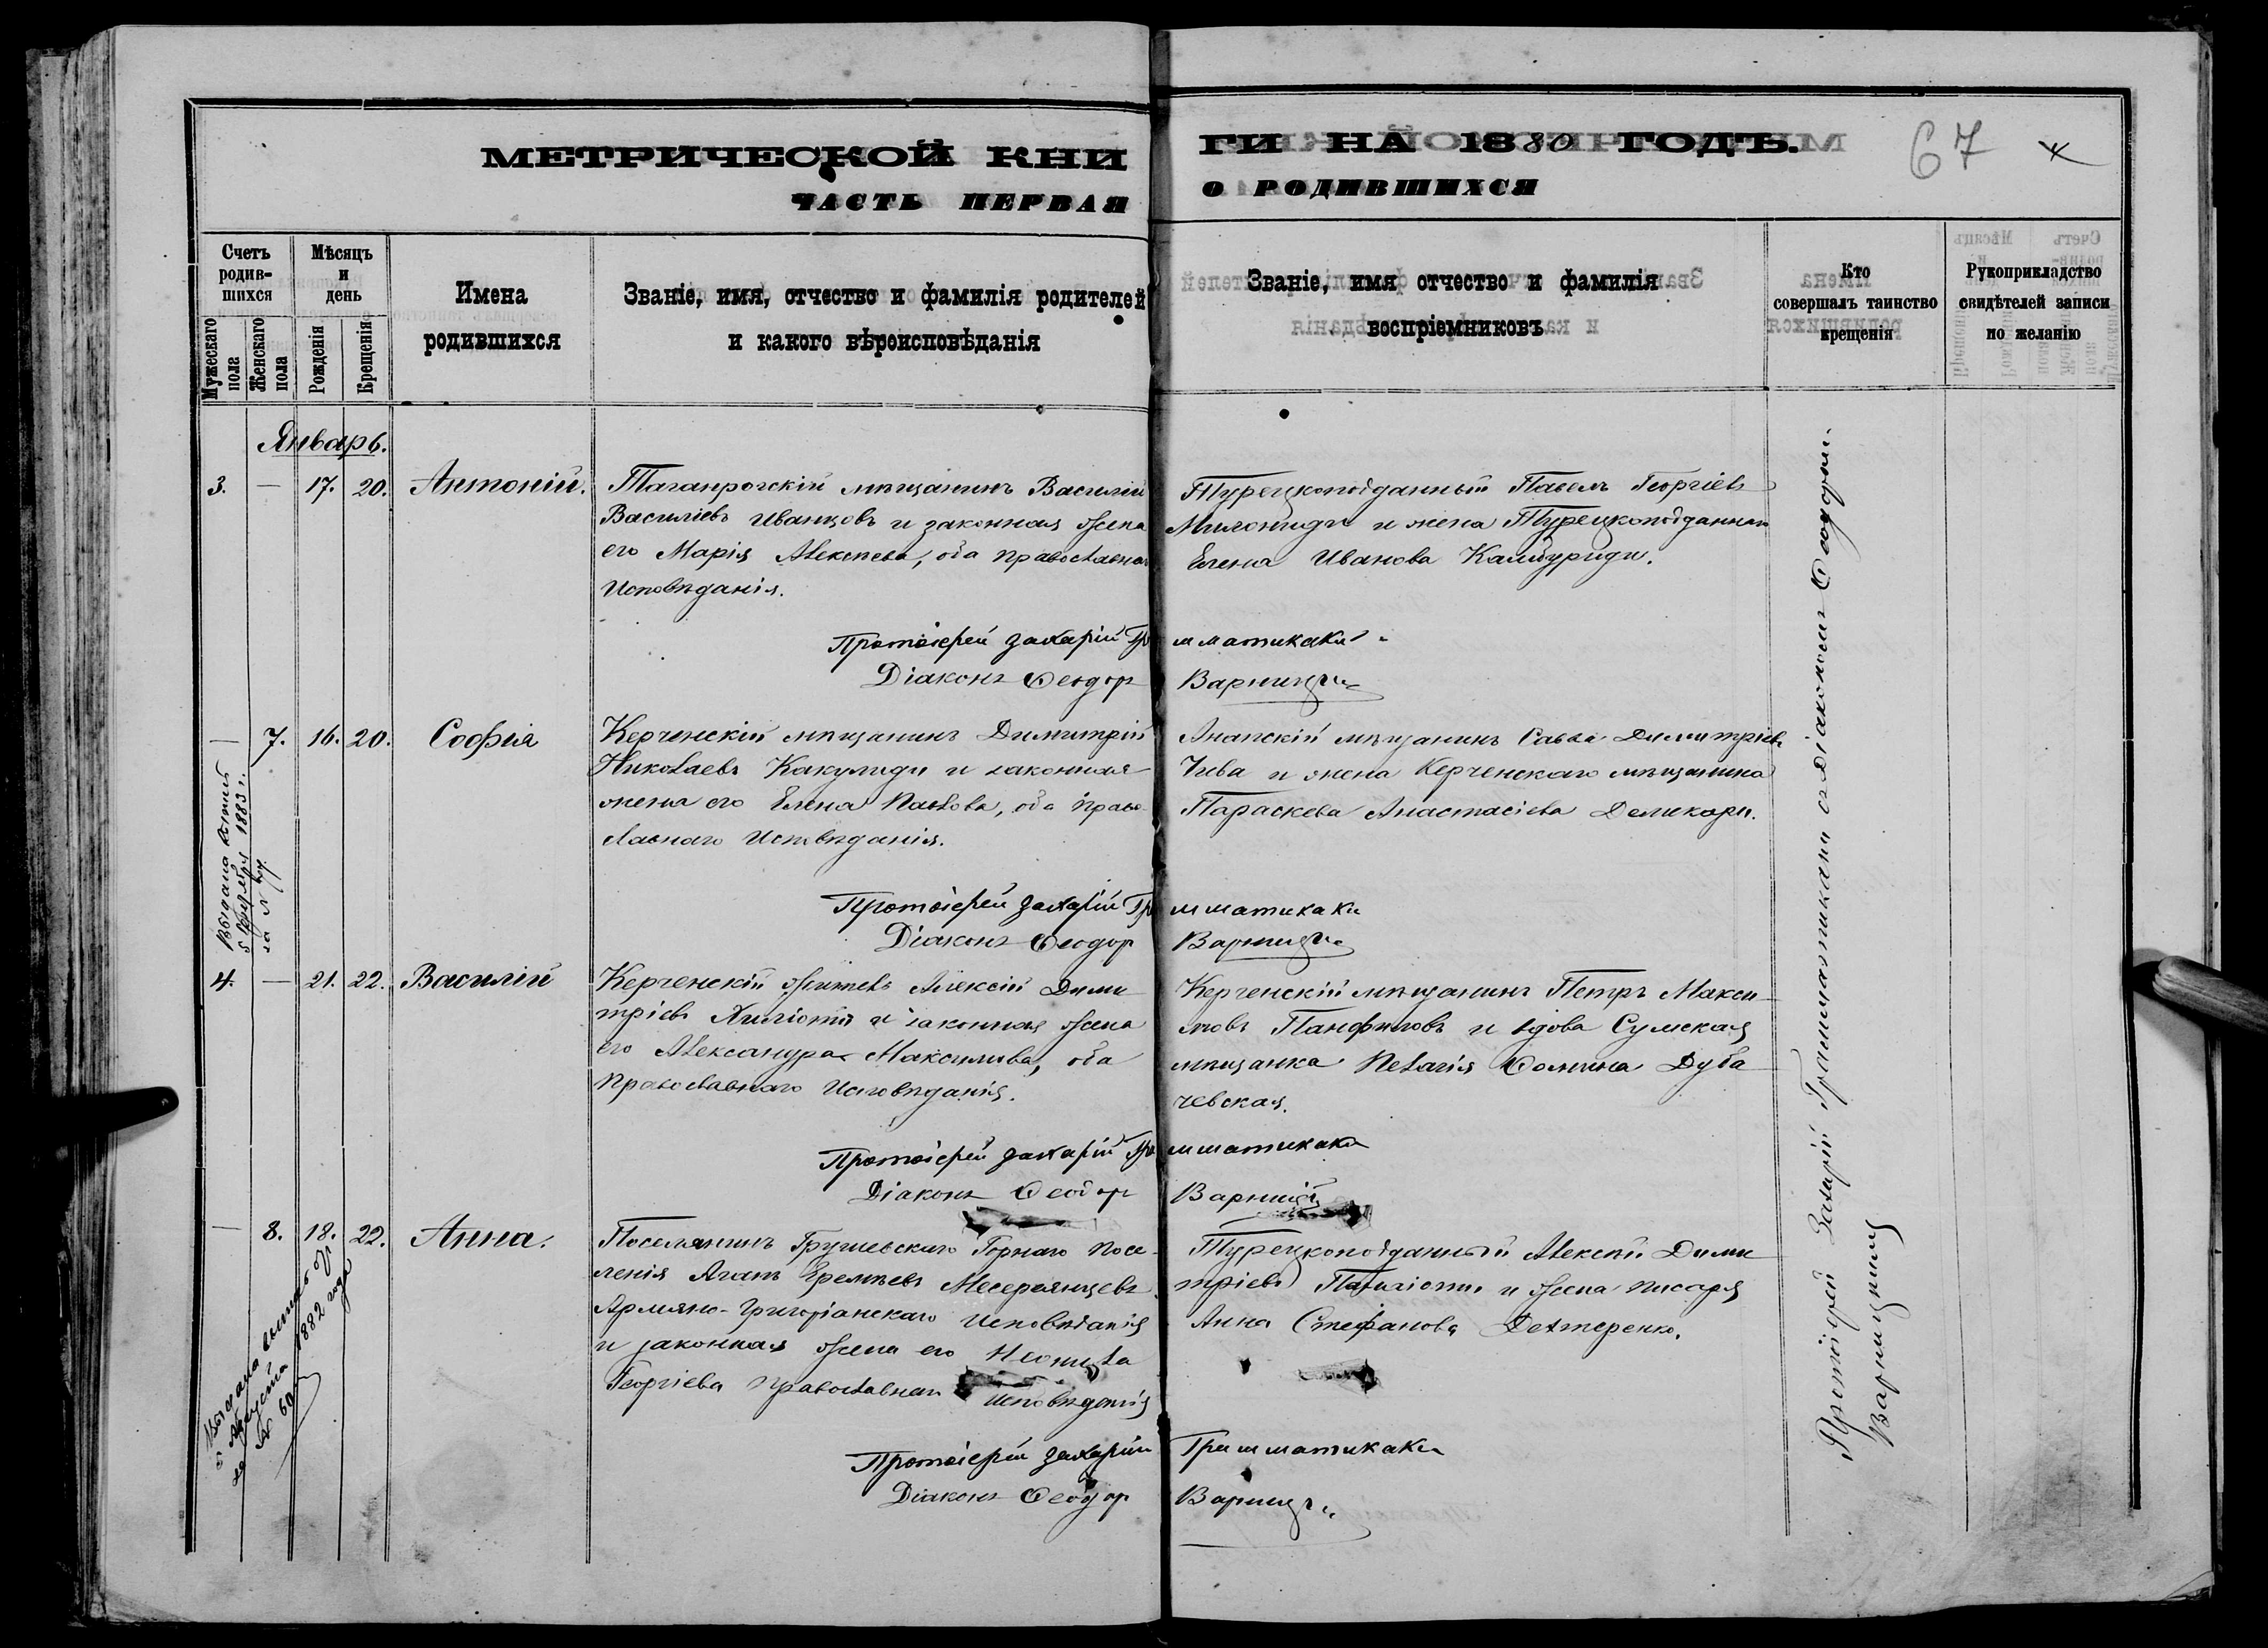 МЕТРИЧЕСКОЙ КНИ
ГИ НА 1880 ГОДЪ.
67
4
ЧАСТЬ ПЕРВАЯ
О РОДИВШИХСЯ
Счетъ родив-шихся
Мужескаго пола
Женскаго пола
Мѣсяцъ и день
Рожденія
Крещенія
Имена
родившихся
Званіе, имя, отчество и фамилія родителей
и какого вѣроисповѣданія
Званіе, имя отчество и фамилія
воспріемниковъ
Кто
совершалъ таинство
крещенія
Рукоприкладство
свидѣтелей записи
по желанію
Январь.
3. — 17. 20. Антоній.
Таганрогскій мѣщанинъ Василій
Василіевъ Иванцовъ и законная жена
его Марія Алексѣева, оба православнаго
Исповѣданія.
Турецкоподданный Павелъ Георгіевъ
и жена Турецкоподданнаго
Елена Иванова
Протоіерей Захарій Грамматикаки
Діаконъ Ѳеодоръ
— 7. 16. 20. Софія
Керченскій мѣщанинъ Димитрій
Николаевъ Какулиди и законная
жена его Елена Павлова, оба право-
славнаго Исповѣданія.
Анапскій мѣщанинъ Савва Димитріевъ
Чива и жена Керченскаго мѣщанина
Параскева Анастасіева Деликари.
Протоіерей Захарій Грамматикаки
Діаконъ Ѳеодоръ
Выдана копія
5 1883 г.
за №
4. — 21. 22. Василій
Керченскій житель Алексій Дими
тріевъ и законная жена
его Александра Максимова, оба
Православнаго Исповѣданія.
Керченскій мѣщанинъ Петръ Макси-
мовъ Панфиловъ и вдова Сумская
мѣщанка Пелагія Ѳомина Дуба
чевская.
Протоіерей Захарій Грамматикаки
Діаконъ Ѳеодоръ
— 8. 18. 22. Анна.
Поселянинъ Грушевскаго Горнаго Посе-
ленія Агапъ Еремѣевъ Месерянцевъ
Армяно-Григоріанскаго Исповѣданія
и законная жена его Неонила
Георгіева Православнаго Исповѣданія
Турецкоподданный Алексѣй Дими
тріевъ и жена писаря
Анна Стефанова Дехтеренко.
Протоіерей Захарій Грамматикаки
Діаконъ Ѳеодоръ
Выдана выпись
5 Августа 1882 года
за № 60
Протоіерей Захарій Грамматикаки съ Діакономъ Ѳеодоромъ